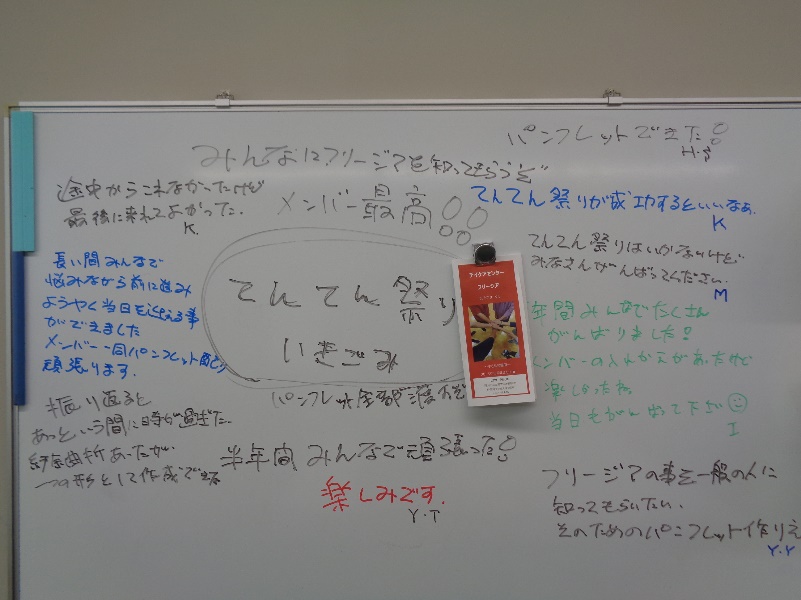 パンフレットできた!
みんなにフリージアを知ってもらうぞ
途中からこれなかったけど
最後に来れてよかった.
K
メンバー最高!!
てんてん祭りが成功するといいなぁ.
K
てんてん祭りはいかないけど
みなさんがんばってください.
M
長い間みんなで
悩みながら前に進み
ようやく当日を迎える事
ができました
メンバー一同パンフレット配り
頑張ります.
てんてん祭り
いきごみ
フリージア
年間みんなでたくさん
がんばりました!
メンバーの入れかえがあったけど
楽しかったね
当日もがんばって下さい
I
パンフレット全部
振り返ると
あっという間に日時が過ぎた.
紆余曲折あったが
一つの形として作成できた
半年間みんなで頑張った!
楽しみです.
Y.T
フリージアの事を一般の人に
知ってもらいたい.
そのためのパンフレット作りえ
Y.Y